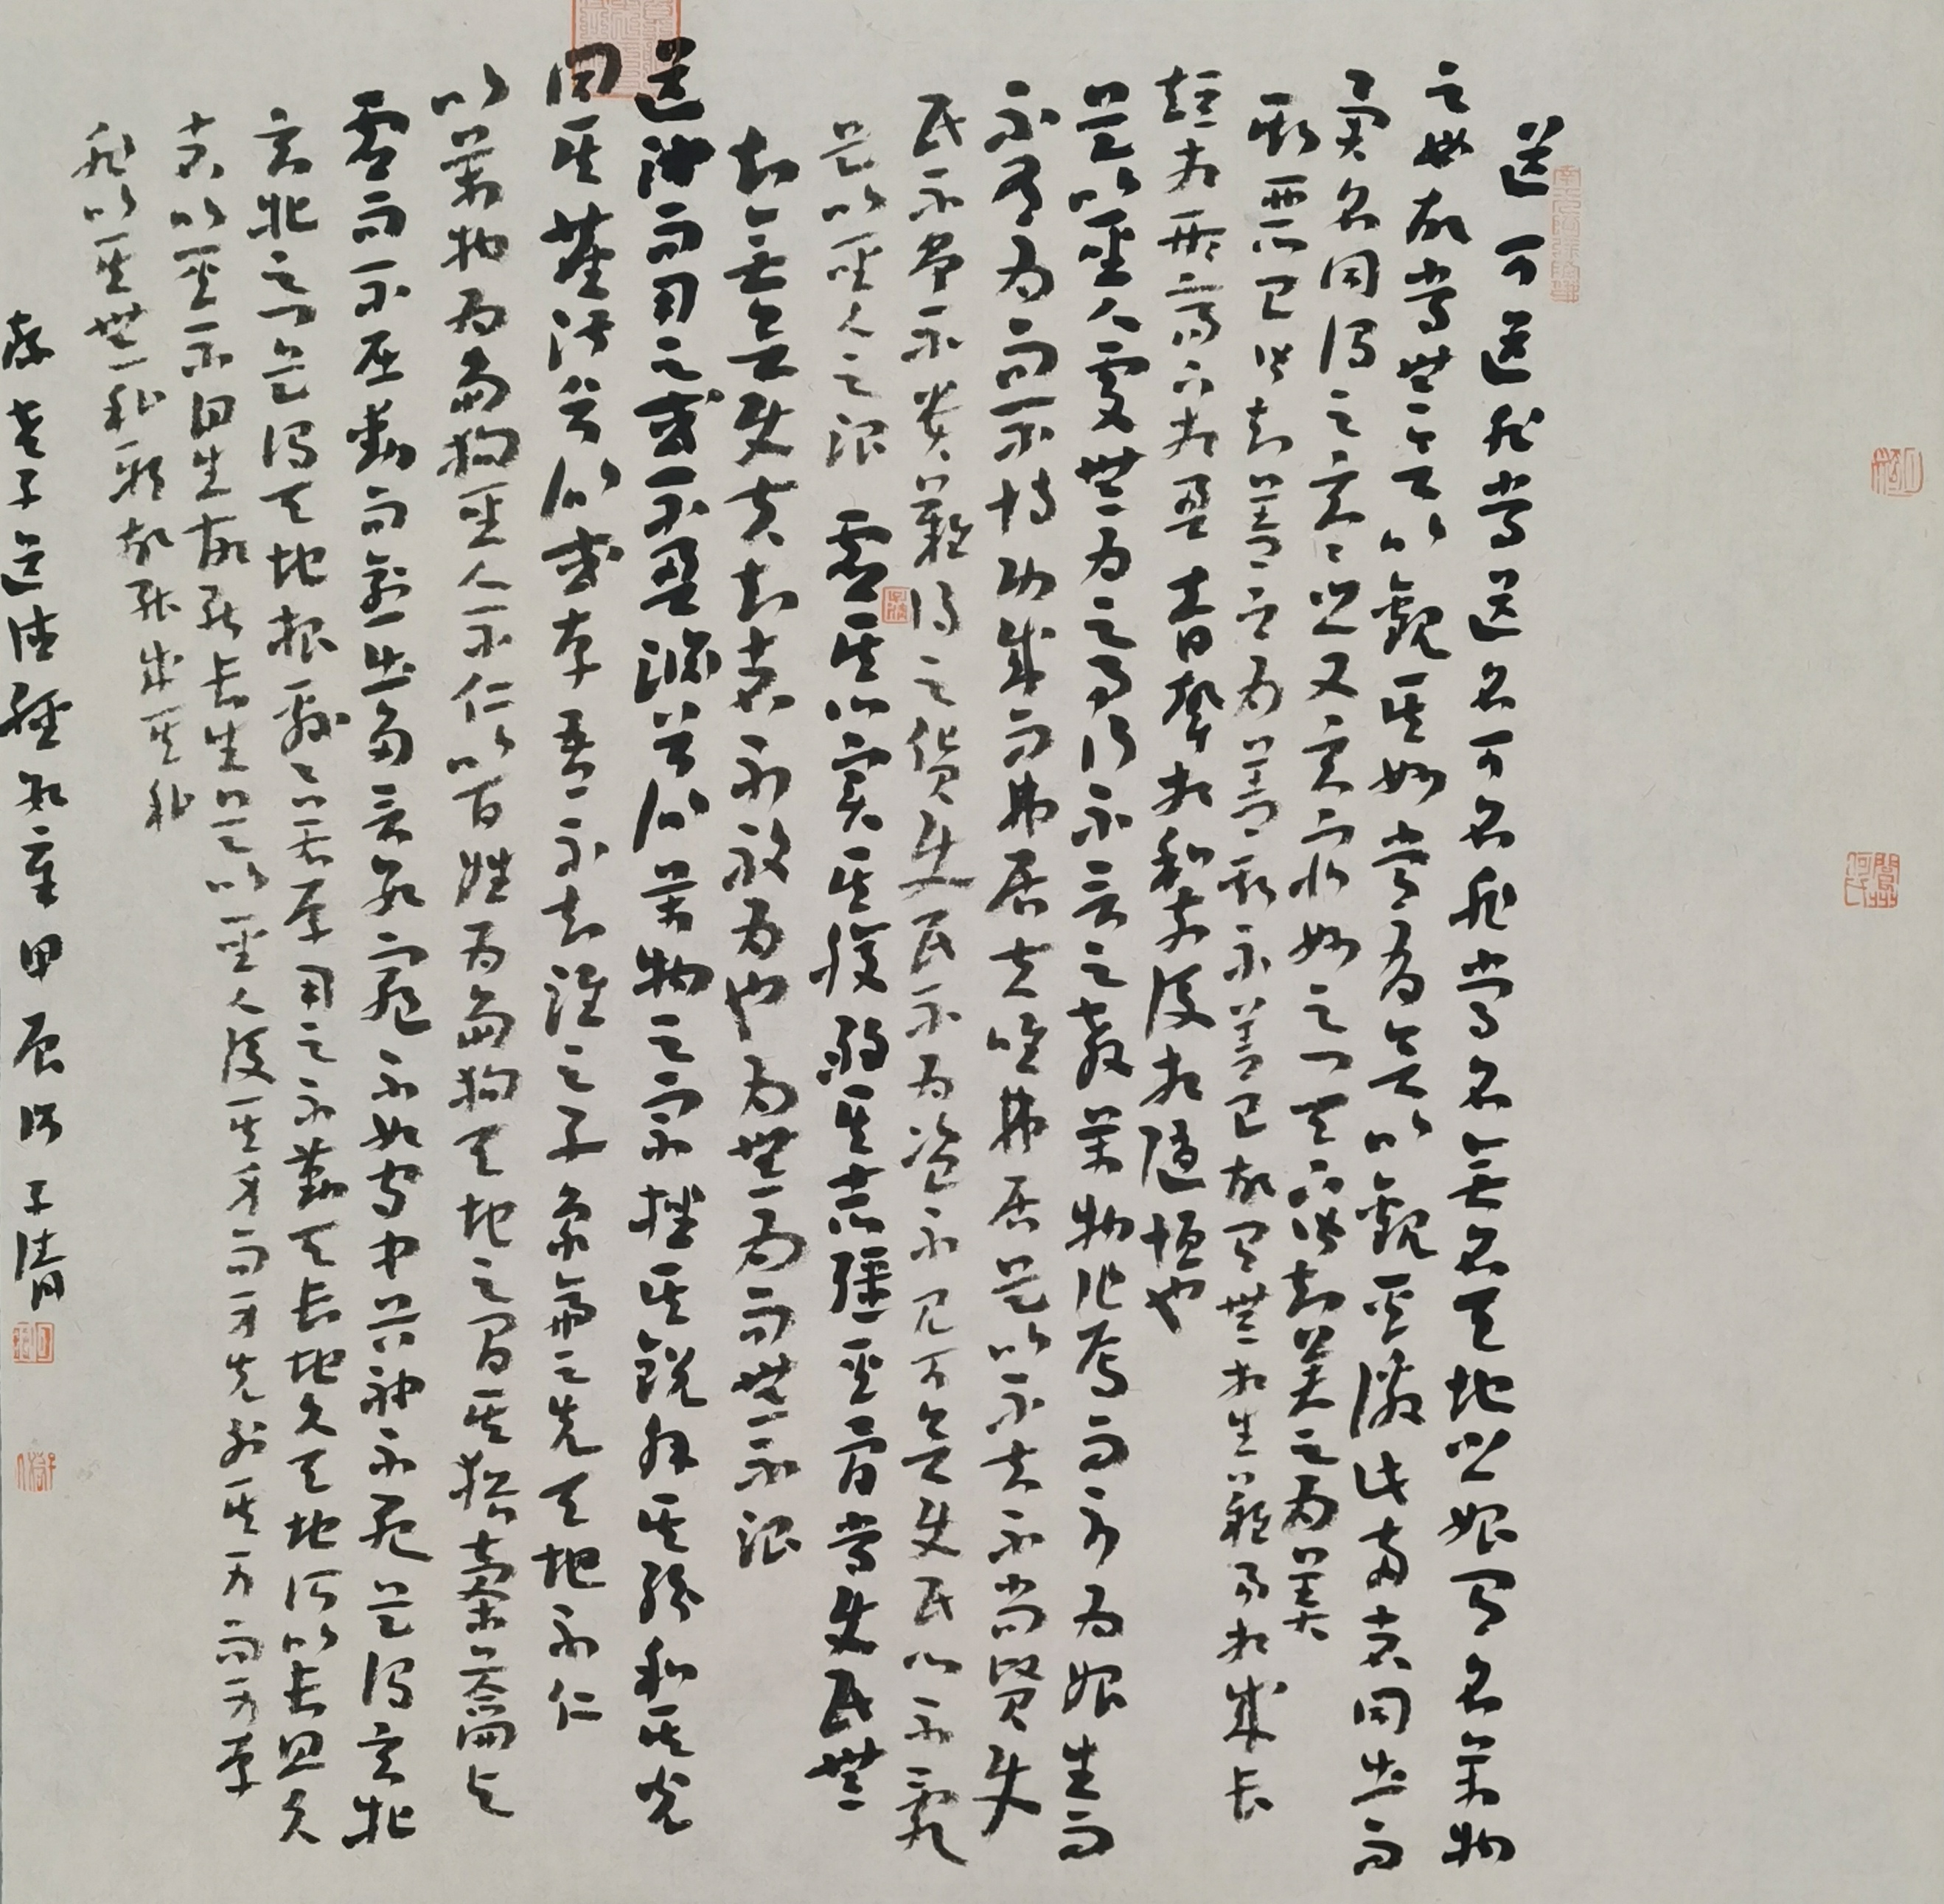 道可道非常道名可名非常名無名天地之始有名萬物
之母故常無欲以觀其妙常有欲以觀其徼此兩者同出而
異名同謂之玄玄之又玄眾妙之門天下皆知美之為美
斯惡已皆知善之為善斯不善已故有無相生難易相成長
短相形高下相盈音聲相和前後相隨恒也
是以聖人處無為之事行不言之教萬物作焉而不為始生而
不有為而不恃功成而弗居夫唯弗居是以不去不尚賢使
民不爭不貴難得之貨使民不為盜不見可欲使民心不亂
是以聖人之治 虛其心實其腹弱其志強其骨常使民無
知無欲使夫知者不敢為也為無為而無不治
道沖而用之或不盈淵兮似萬物之宗挫其銳解其紛和其光
同其塵湛兮似或存吾不知誰之子象帝之先天地不仁
以萬物為芻狗聖人不仁以百姓為芻狗天地之間其猶橐籥乎
虛而不屈動而愈出多言數窮不如守中谷神不死是謂玄牝
玄牝之門是謂天地根綿綿若存用之不勤天長地久天地所以長且久
者以其不自生故能長生是以聖人後其身而身先外其身而身存
非以其無私耶故能成其私
老子道德經 章甲辰 子清